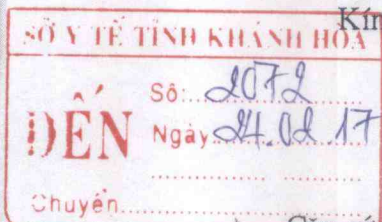 Kín
SỞ Y TẾ TỈNH KHÁNH HOÀ
ĐẾN
Số: 2072
Ngày 24.02.17
Chuyển